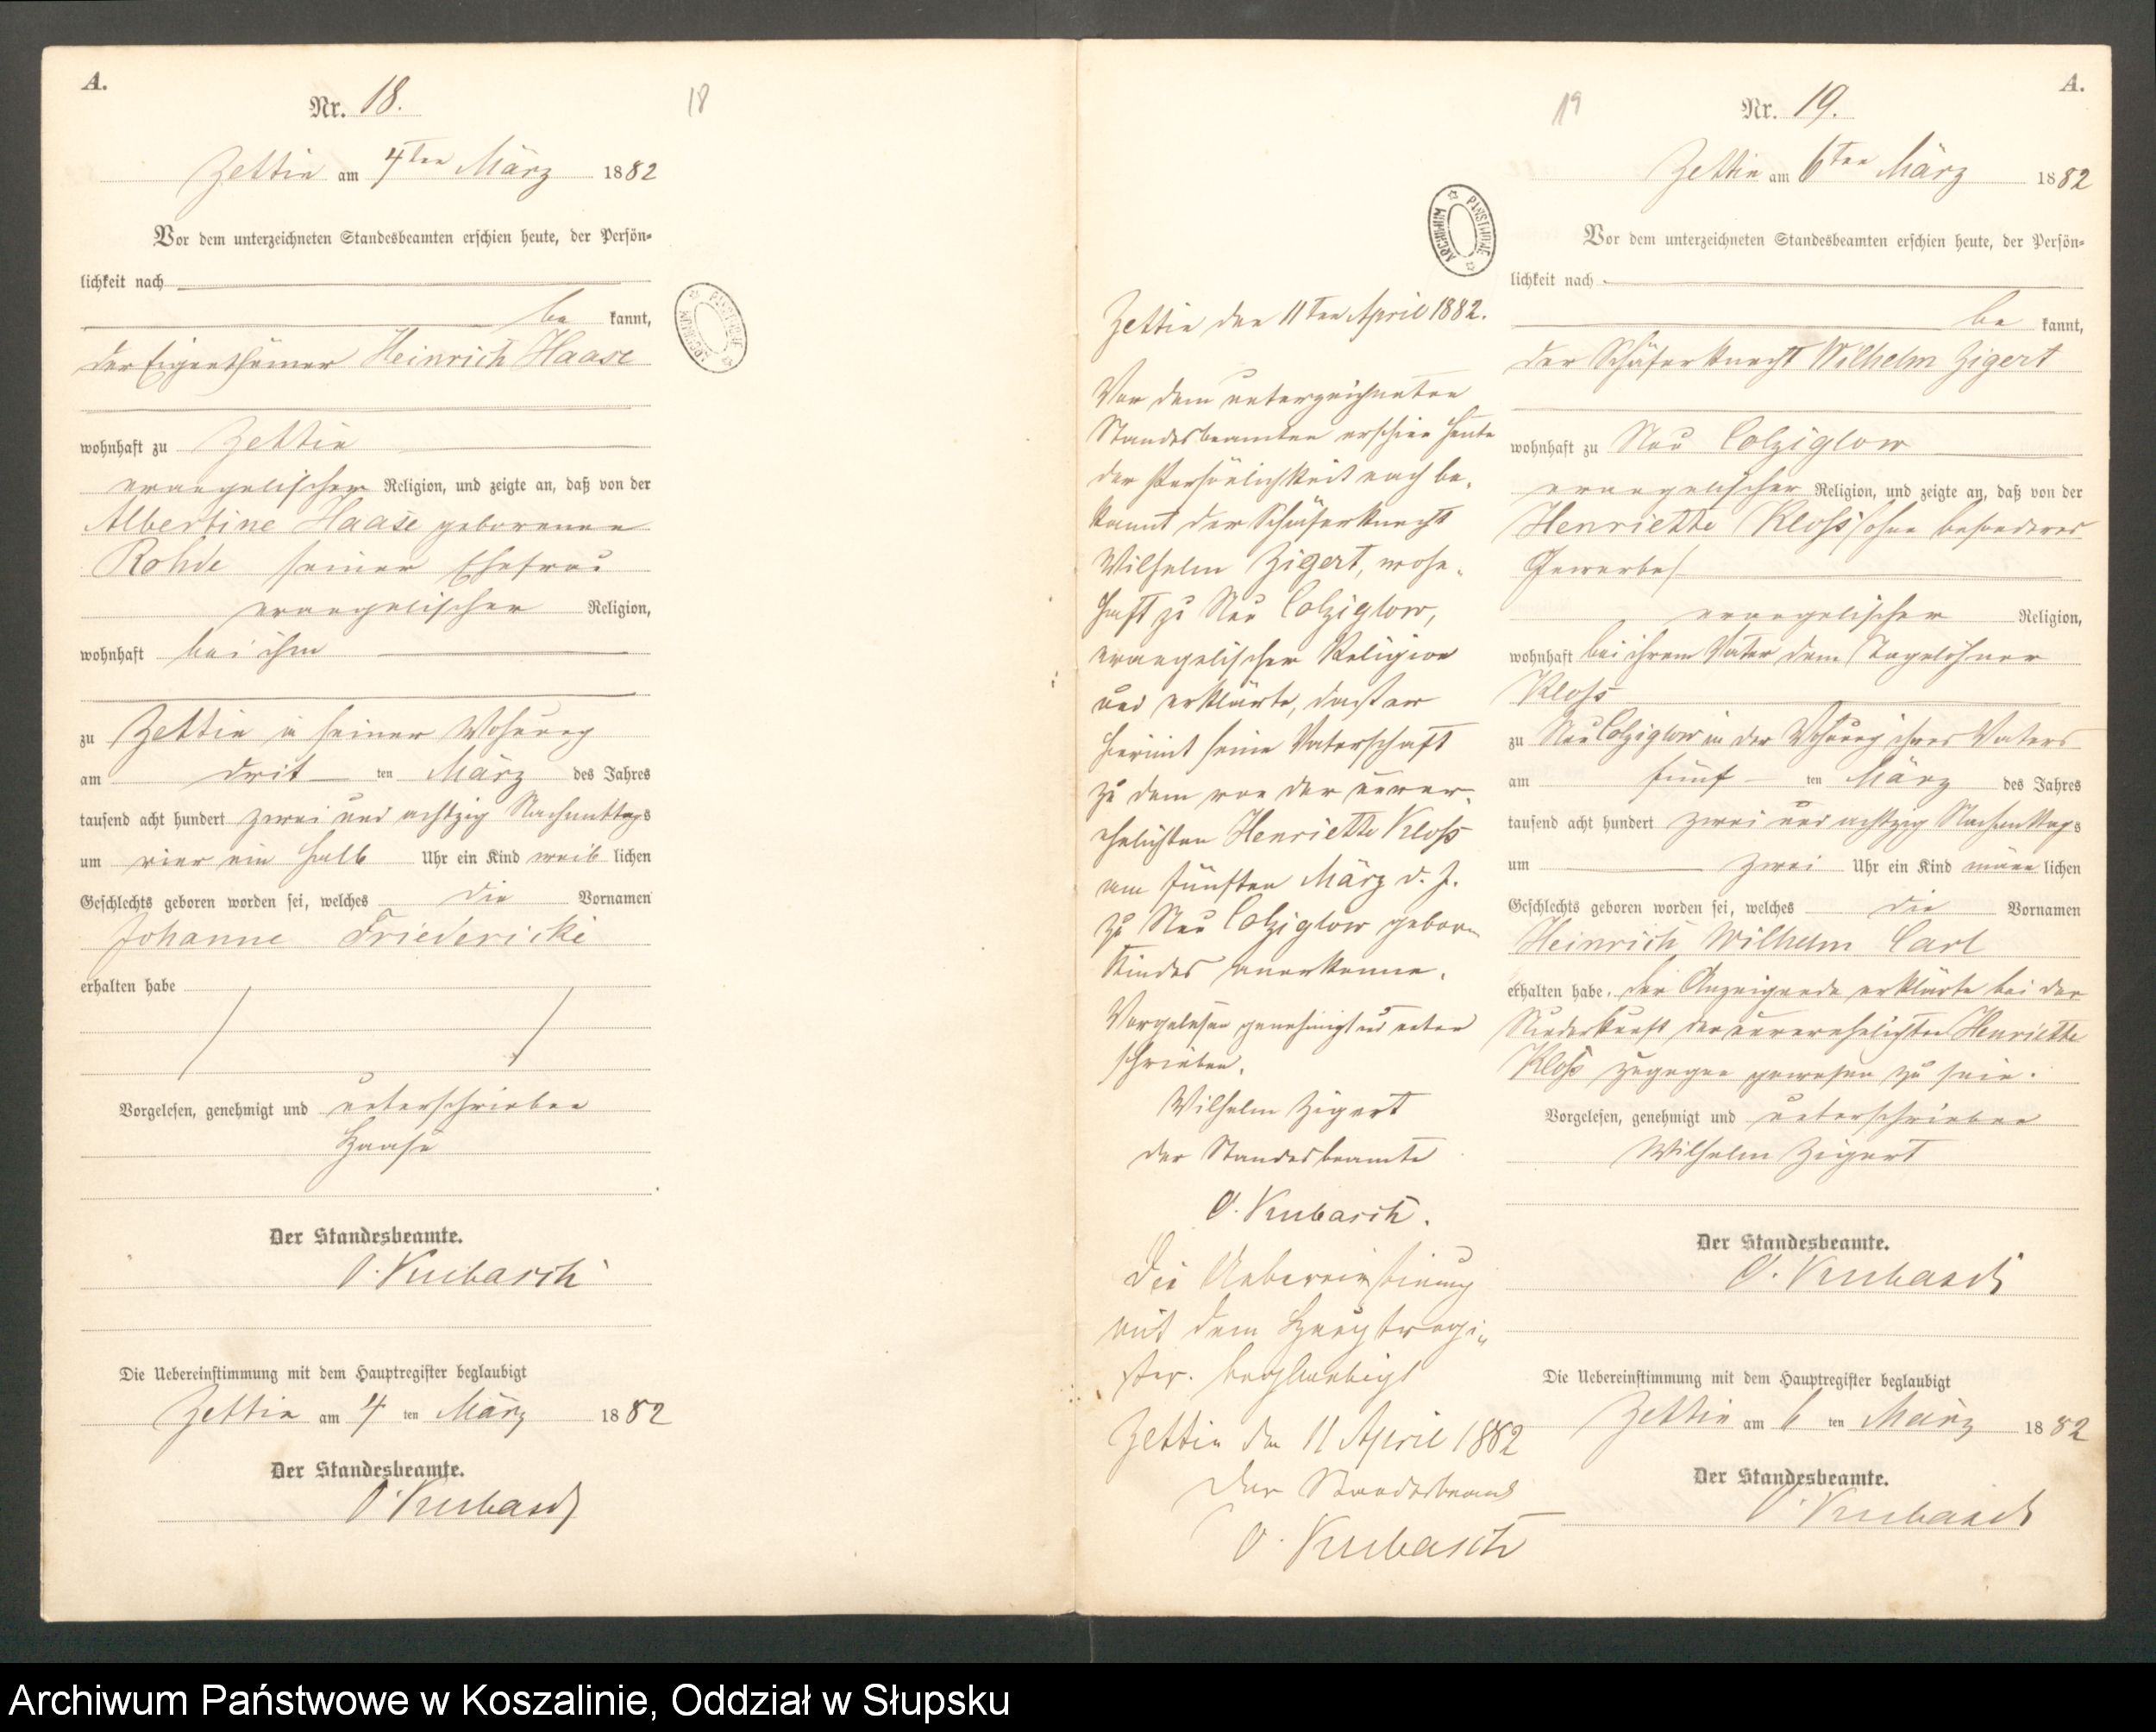 A.
Nr. 18.
18
Zettin am 4ten März 1882
Vor dem unterzeichneten Standesbeamten erschien heute, der Persön-
lichkeit nach
be kannt,
der Eigenthümer Heinrich Haase
wohnhaft zu Zettin
evangelischer Religion, und zeigte an, daß von der
Albertine Haase geborenen
Rohde seiner Ehefrau
evangelischer Religion,
wohnhaft bei ihm
zu Zettin in seiner Wohnung
am drit ten März des Jahres
tausend acht hundert zwei und achtzig Nachmittags
um vier ein halb Uhr ein Kind weib lichen
Geschlechts geboren worden sei, welches die Vornamen
Johanne Friedericke
erhalten habe
Vorgelesen, genehmigt und unterschrieben
Haase
Der Standesbeamte.
O. Kubasch
Die Uebereinstimmung mit dem Hauptregister beglaubigt
Zettin am 4 ten März 1882
Der Standesbeamte.
O. Kubasch
ARCHIWUM PAŃSTWOWE
Zettin den 11ten April 1882.
Vor dem unterzeichneten
Standesbeamten erschien heute
der Persönlichkeit nach be-
kannt der Schäferknecht
Wilhelm Zigert, wohn-
haft zu Neu Colziglow,
evangelischer Religion
und erklärte, daß er
hiermit seine Vaterschaft
zu dem von der unver-
ehelichten Henriette Kloß
am fünften März d. J.
zu Neu Colziglow geborn
Kindes anerkenne.
Vorgelesen genehmigt und unter
schrieben.
Wilhelm Zigert
der Standesbeamte
O. Kubasch.
Die Uebereinstimung
mit dem Hauptregi-
ster. beglaubigt
Zettin den 11 April 1882
Der Standesbeamte
O. Kubasch
ARCHIWUM PAŃSTWOWE
A.
19
Nr. 19.
Zettin am 6ten März 1882
Vor dem unterzeichneten Standesbeamten erschien heute, der Persön-
lichkeit nach
be kannt,
der Schäferknecht Wilhelm Zigert
wohnhaft zu Neu Colziglow
evangelischer Religion, und zeigte an, daß von der
Henriette Kloß /ohne besonderes
Gewerbe/
evangelischer Religion,
wohnhaft bei ihrem Vater dem Tagelöhner
Kloß
zu Neu Colziglow in der Wohnung ihres Vaters
am fünf ten März des Jahres
tausend acht hundert zwei und achtzig Nachmittags
um zwei Uhr ein Kind männ lichen
Geschlechts geboren worden sei, welches die Vornamen
Heinrich Wilhelm Carl
erhalten habe. Der Anzeigende erklärte bei der
Niederkunft der unverehelichten Henriette
Kloß zugegen gewesen zu sein.
Vorgelesen, genehmigt und unterschrieben
Wilhelm Zigert
Der Standesbeamte.
O. Kubasch
Die Uebereinstimmung mit dem Hauptregister beglaubigt
Zettin am 6 ten März 1882
Der Standesbeamte.
O. Kubasch
Archiwum Państwowe w Koszalinie, Oddział w Słupsku